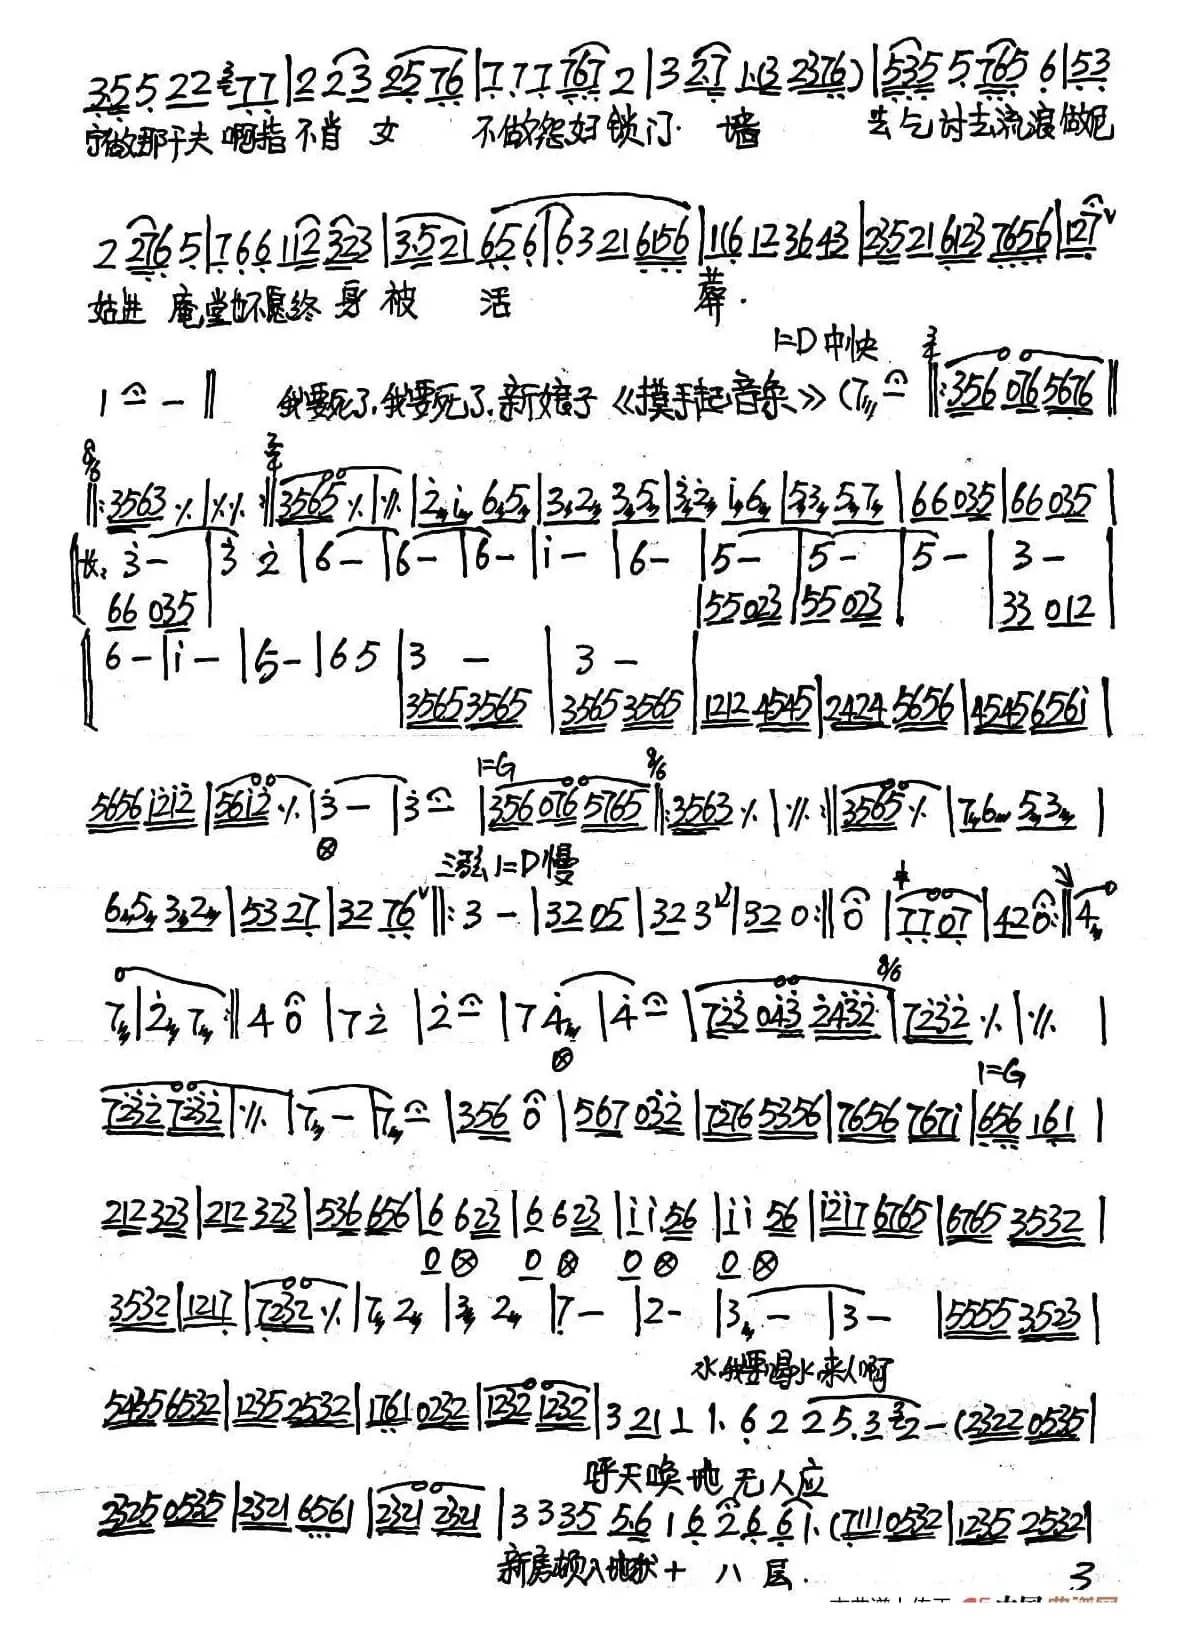 3 5 5 22 77 | 2 2 3 25 76 | 7 7 7 767 2 | 3 27 1 (3 2376) | 535 5 765 6 | 53
宁做那千夫啊指不肖女 不做怨妇锁门·墙 去乞讨去流浪做尼
2 276 5 | 7 6 6 112 323 | 3·5 21 656 | 6 3 21 6156 | 116 12 36 43 | 2352 1 6123 7656 | 127
姑进 庵堂也不愿终身被 活 葬·
1=D 中快
1 – ‖ 我要死了，我要死了，新娘子《摸手起音乐》(7 ‖: 356 076 5676 ‖
8/6 ‖: 3563 ٪ | ٪٪ :‖ 2/4 3565 ٪ | ٪ | 2 i 6 5 | 3 2 3 5 | 3 2 i 6 | 5 3 5 7 | 66 035 | 66 035 |
长: 3 – | 3 2 | 6 – | 6 – | 6 – | i – | 6 – | 5 – | 5 – | 5 – | 3 – |
66 035 | 55 023 | 55 023 | 33 012 |
6 – | i – | 5 – | 6 5 | 3 – | 3 – |
3565 3565 | 3565 3565 | 1212 4545 | 2424 5656 | 4545 656i |
1=G 8/6
5656 i2i2 | 56i2 ٪ | 3 – | 3 | 356 076 5765 ‖: 3563 ٪ | ٪ :‖ 3565 ٪ | 7 6 5 3 |
⊗ 三弦 1=D 慢
6 5 3 2 | 53 27 | 32 76 ‖: 3 – | 32 05 | 32 3 | 32 0 :‖ 0 | 77 07 | 42 0 :‖ 4
7 | 2 7 :‖ 4 0 | 7 2 | 2 | 7 4 | 4 | 723 043 2432 | 8/6 7232 ٪ | ٪ |
⊗
1=G
7232 7232 | ٪ | 7 – | 7 | 356 0 | 567 032 | 7276 5356 | 7656 767i | 656 161 |
212 323 | 212 323 | 536 656 | 6 623 | 6 623 | i i56 | i i 56 | i2i7 6765 | 6765 3532 |
0 ⊗ 0 ⊗ 0 ⊗ 0 ⊗
3532 | 1217 | 7232 ٪ | 7 2 | 3 2 | 7 – | 2 – | 3 – | 3 – | 5555 3523 |
水我要喝水来人啊
54356532 | 1235 2532 | 1761 0232 | 1232 1232 | 3 21 1 1· 6 2 2 5·3 2 – (2322 0535 |
呼天唤地 无人应
2325 0535 | 2321 6561 | 2321 2321 | 3 3 35 5·6 1 6 2 6 6 1· (7111 0532 | 1235 2532 |
新房顿入地狱十 八 层· 3